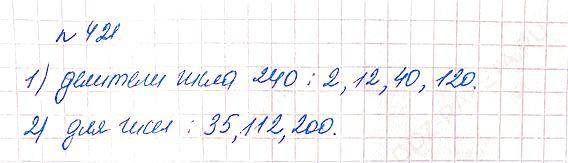 n 421
1) делители числа 240 : 2, 12, 40, 120.
2) для чисел : 35, 112, 200.